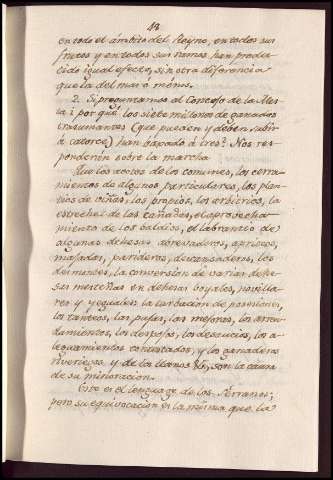 13
en todo el ámbito del Reyno, en todos sus
frutos y en todos sus ramos han produ
cido igual efecto, sin otra diferencia
que la del mas ó menos.
2. Si preguntamos al Concejo de la Mes
ta ¿por qué los siete millones de ganados
trasumantes (que pueden y deben subir
á catorce) han baxado á tres? Nos res
ponderán sobre la marcha
Que los cotos de los comunes, los cerra
mientos de algunos particulares, los plan
tios de viñas, los propios, los arbitrios, la
estrechez de las cañadas, el aprovecha
miento de los baldios, el labrantio de
algunas dehesas, abrevaderos, apriscos,
majadas, parideros, descansaderos, los
desmontes, la conversion de varias dehe
sas mesteñas en dehesas boyales, novilla
res y yeguales, la turbacion de posesiones,
los tanteos, las pujas, las mejoras, los arren
damientos, los despojos, los desaucios, los a
legamientos contestados, y los ganaderos
riveriegos y de los llanos &c, son la causa
de su minoracion.
Este es el lenguage de los Serranos;
pero su equivocacion es la misma que la